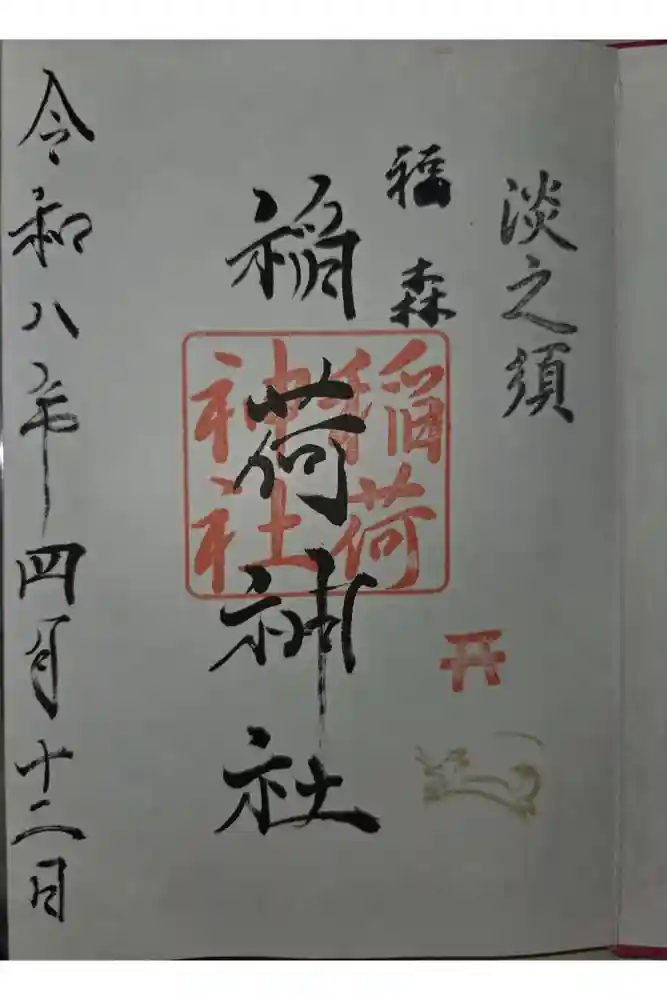 淡之須
福森
稲荷神社
稲荷神社
令和八年四月十二日